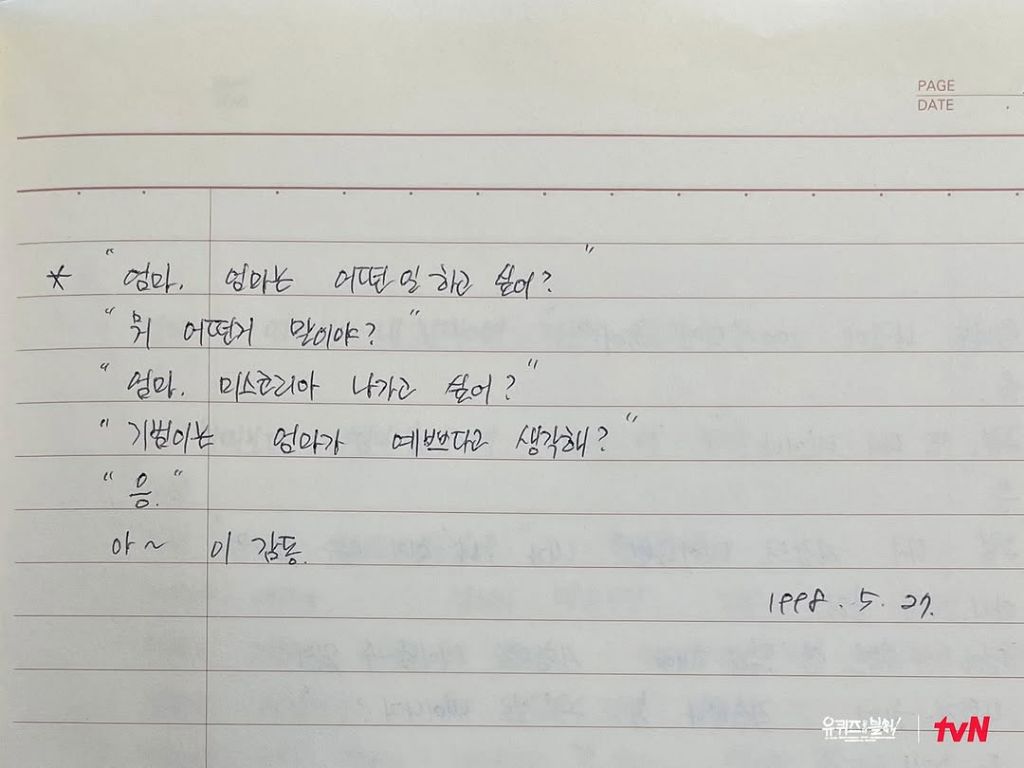 PAGE
DATE
* "엄마. 엄마는 어떤 일 하고 싶어?"
"뭐 어떤거 말이야?"
"엄마. 미스코리아 나가고 싶어?"
"기범이는 엄마가 예쁘다고 생각해?"
"응."
아~ 이 감동.
1998. 5. 27.
유퀴즈 온 더 블럭 tvN